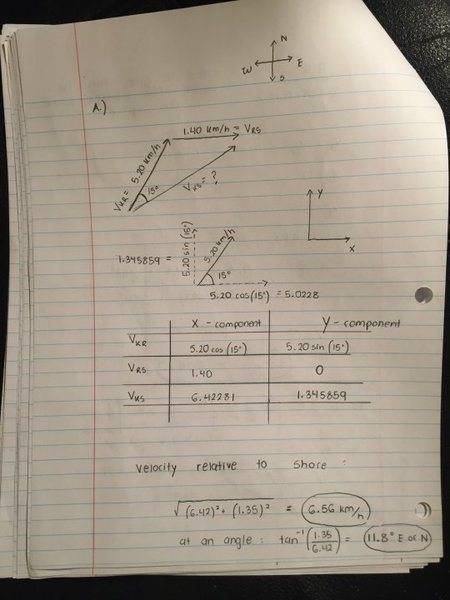 N
W E
S
A.)
1.40 km/h = VRS
VKR = 5.20 km/h
15°
VKS = ?
y
x
1.345859 = 5.20 sin (15°)
5.20 km/h
15°
5.20 cos(15°) = 5.0228
x - component y - component
VKR 5.20 cos (15°) 5.20 sin (15°)
VRS 1.40 0
VKS 6.42281 1.345859
Velocity relative to shore :
√(6.42)² + (1.35)² = 6.56 km/h
at an angle : tan⁻¹ (1.35/6.42) = 11.8° E of N